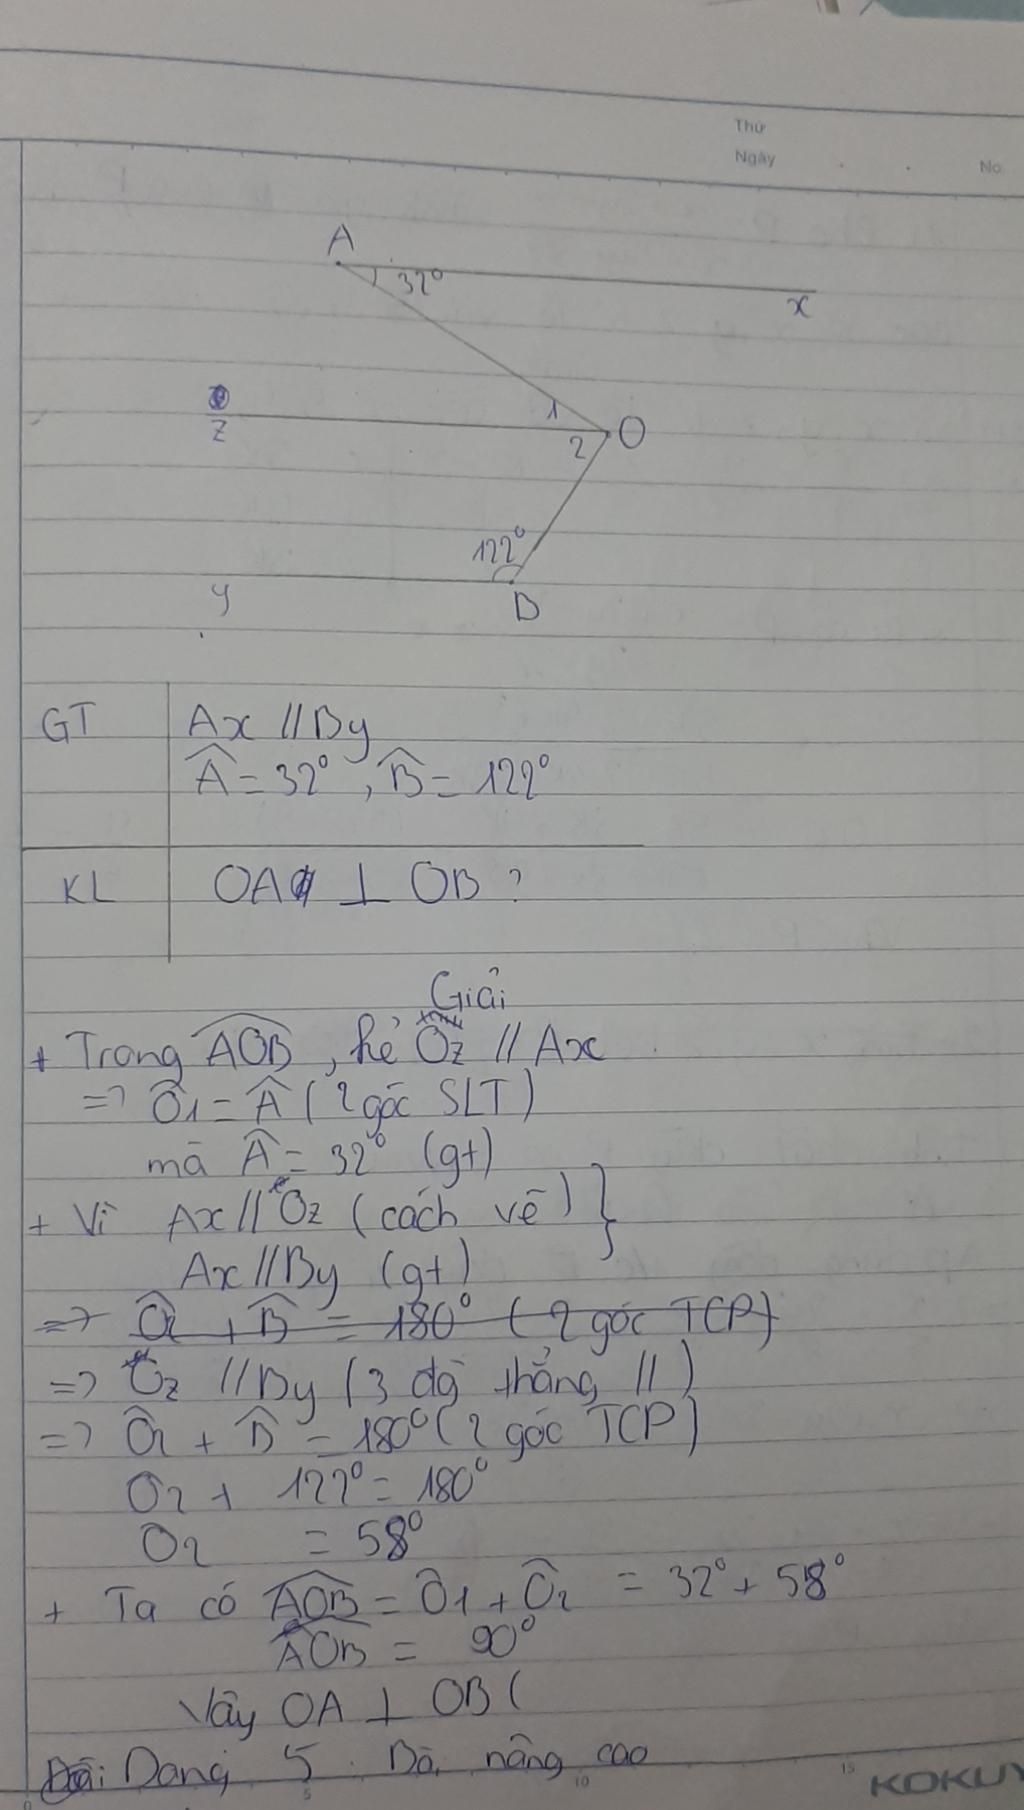 Thứ
Ngày
No
A
32°
x
1
z
2
O
122°
y
B
GT
Ax // By
Â = 32°, B̂ = 122°
KL
OA ⊥ OB ?
Giải
+ Trong AOB, kẻ Oz // Ax
=> Ô1 = Â (2 góc SLT)
mà Â = 32° (gt)
+ Vì Ax // Oz (cách vẽ) }
Ax // By (gt)
=> Ô2 + B̂ = 180° (2 góc TCP)
=> Oz // By (3 đg thẳng //)
=> Ô2 + B̂ = 180° (2 góc TCP)
O2 + 122° = 180°
O2 = 58°
+ Ta có AOB = Ô1 + Ô2 = 32° + 58°
AOB = 90°
Vậy OA ⊥ OB (
Dạng 5. Bài nâng cao
5 10 15 KOKUY